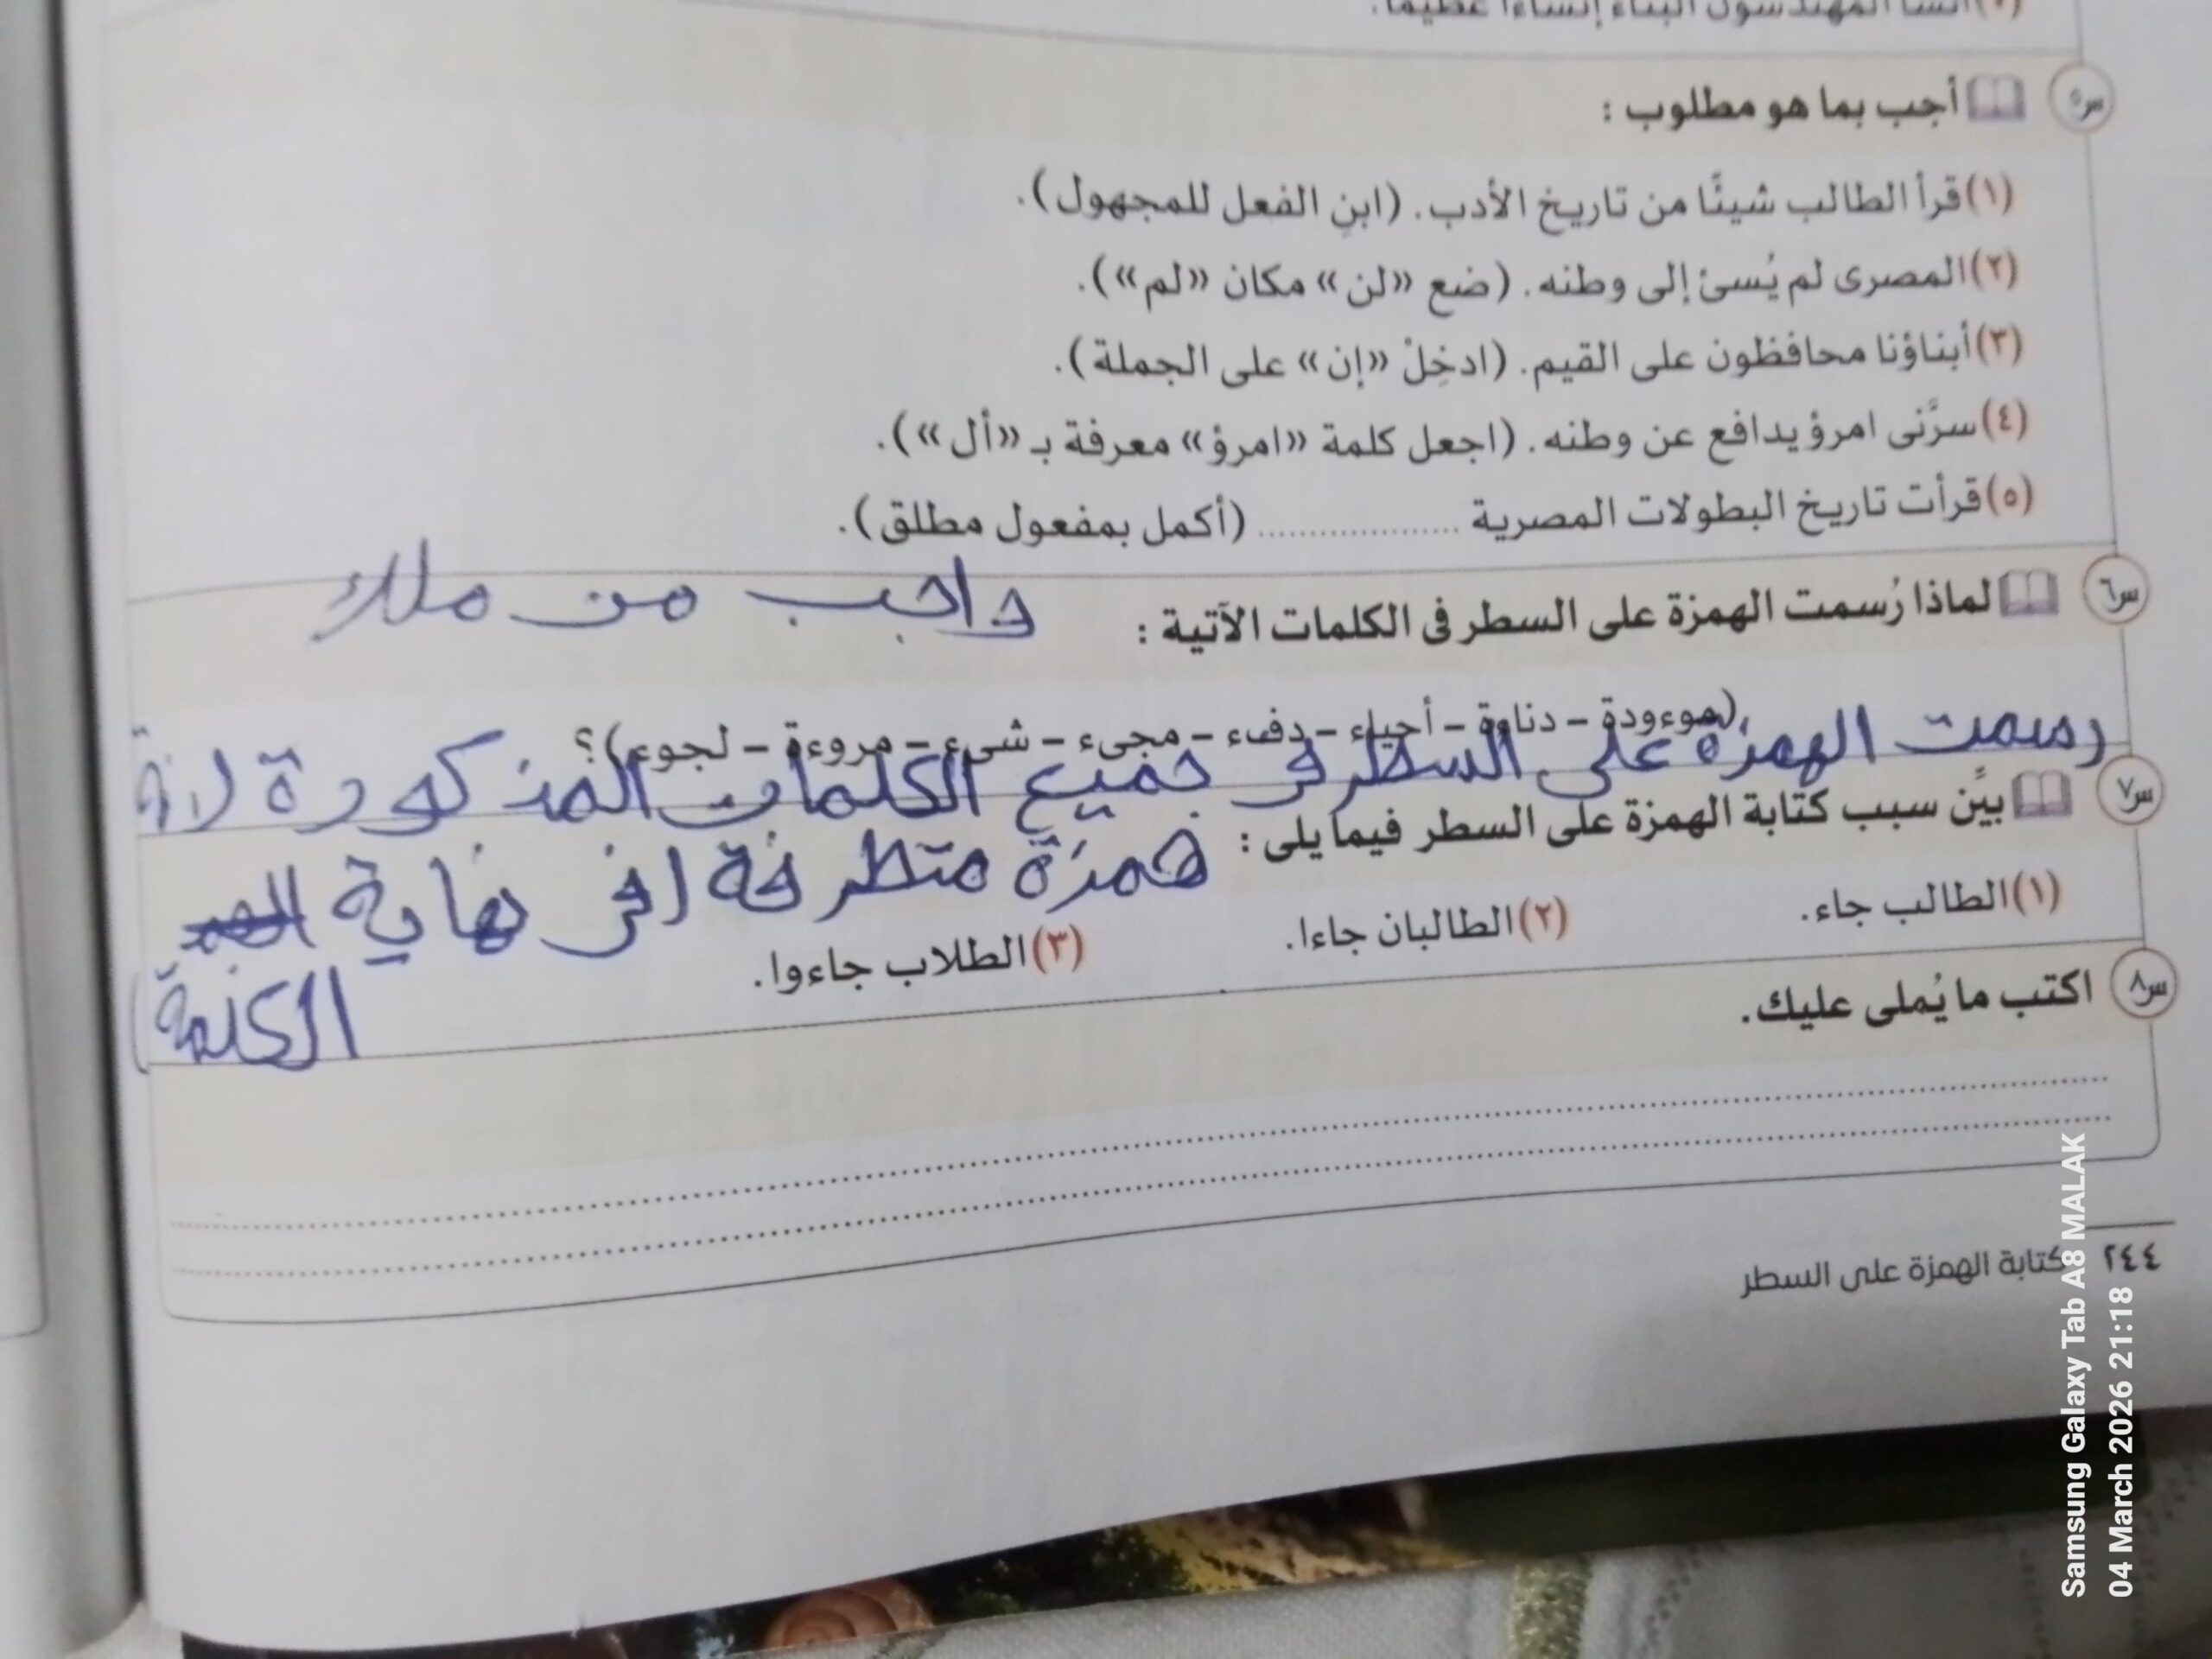 س٥ أجب بما هو مطلوب :
(١) قرأ الطالب شيئًا من تاريخ الأدب. (ابنِ الفعل للمجهول).
(٢) المصرى لم يُسئ إلى وطنه. (ضع «لن» مكان «لم»).
(٣) أبناؤنا محافظون على القيم. (ادخِلْ «إن» على الجملة).
(٤) سرَّنى امرؤ يدافع عن وطنه. (اجعل كلمة «امرؤ» معرفة بـ «أل»).
(٥) قرأت تاريخ البطولات المصرية .................... (أكمل بمفعول مطلق).
واجب من ملك
س٦ لماذا رُسمت الهمزة على السطر فى الكلمات الآتية :
(موءودة - دناءة - أحياء - دفء - مجىء - شىء - مروءة - لجوء) ؟
رسمت الهمزة على السطر في جميع الكلمات المذكورة لانة
س٧ بيِّن سبب كتابة الهمزة على السطر فيما يلى :
همزة متطرفة في نهاية
الكلمة
(١) الطالب جاء. (٢) الطالبان جاءا. (٣) الطلاب جاءوا.
س٨ اكتب ما يُملى عليك.
٢٤٤ كتابة الهمزة على السطر
Samsung Galaxy Tab A8 MALAK
04 March 2026 21:18